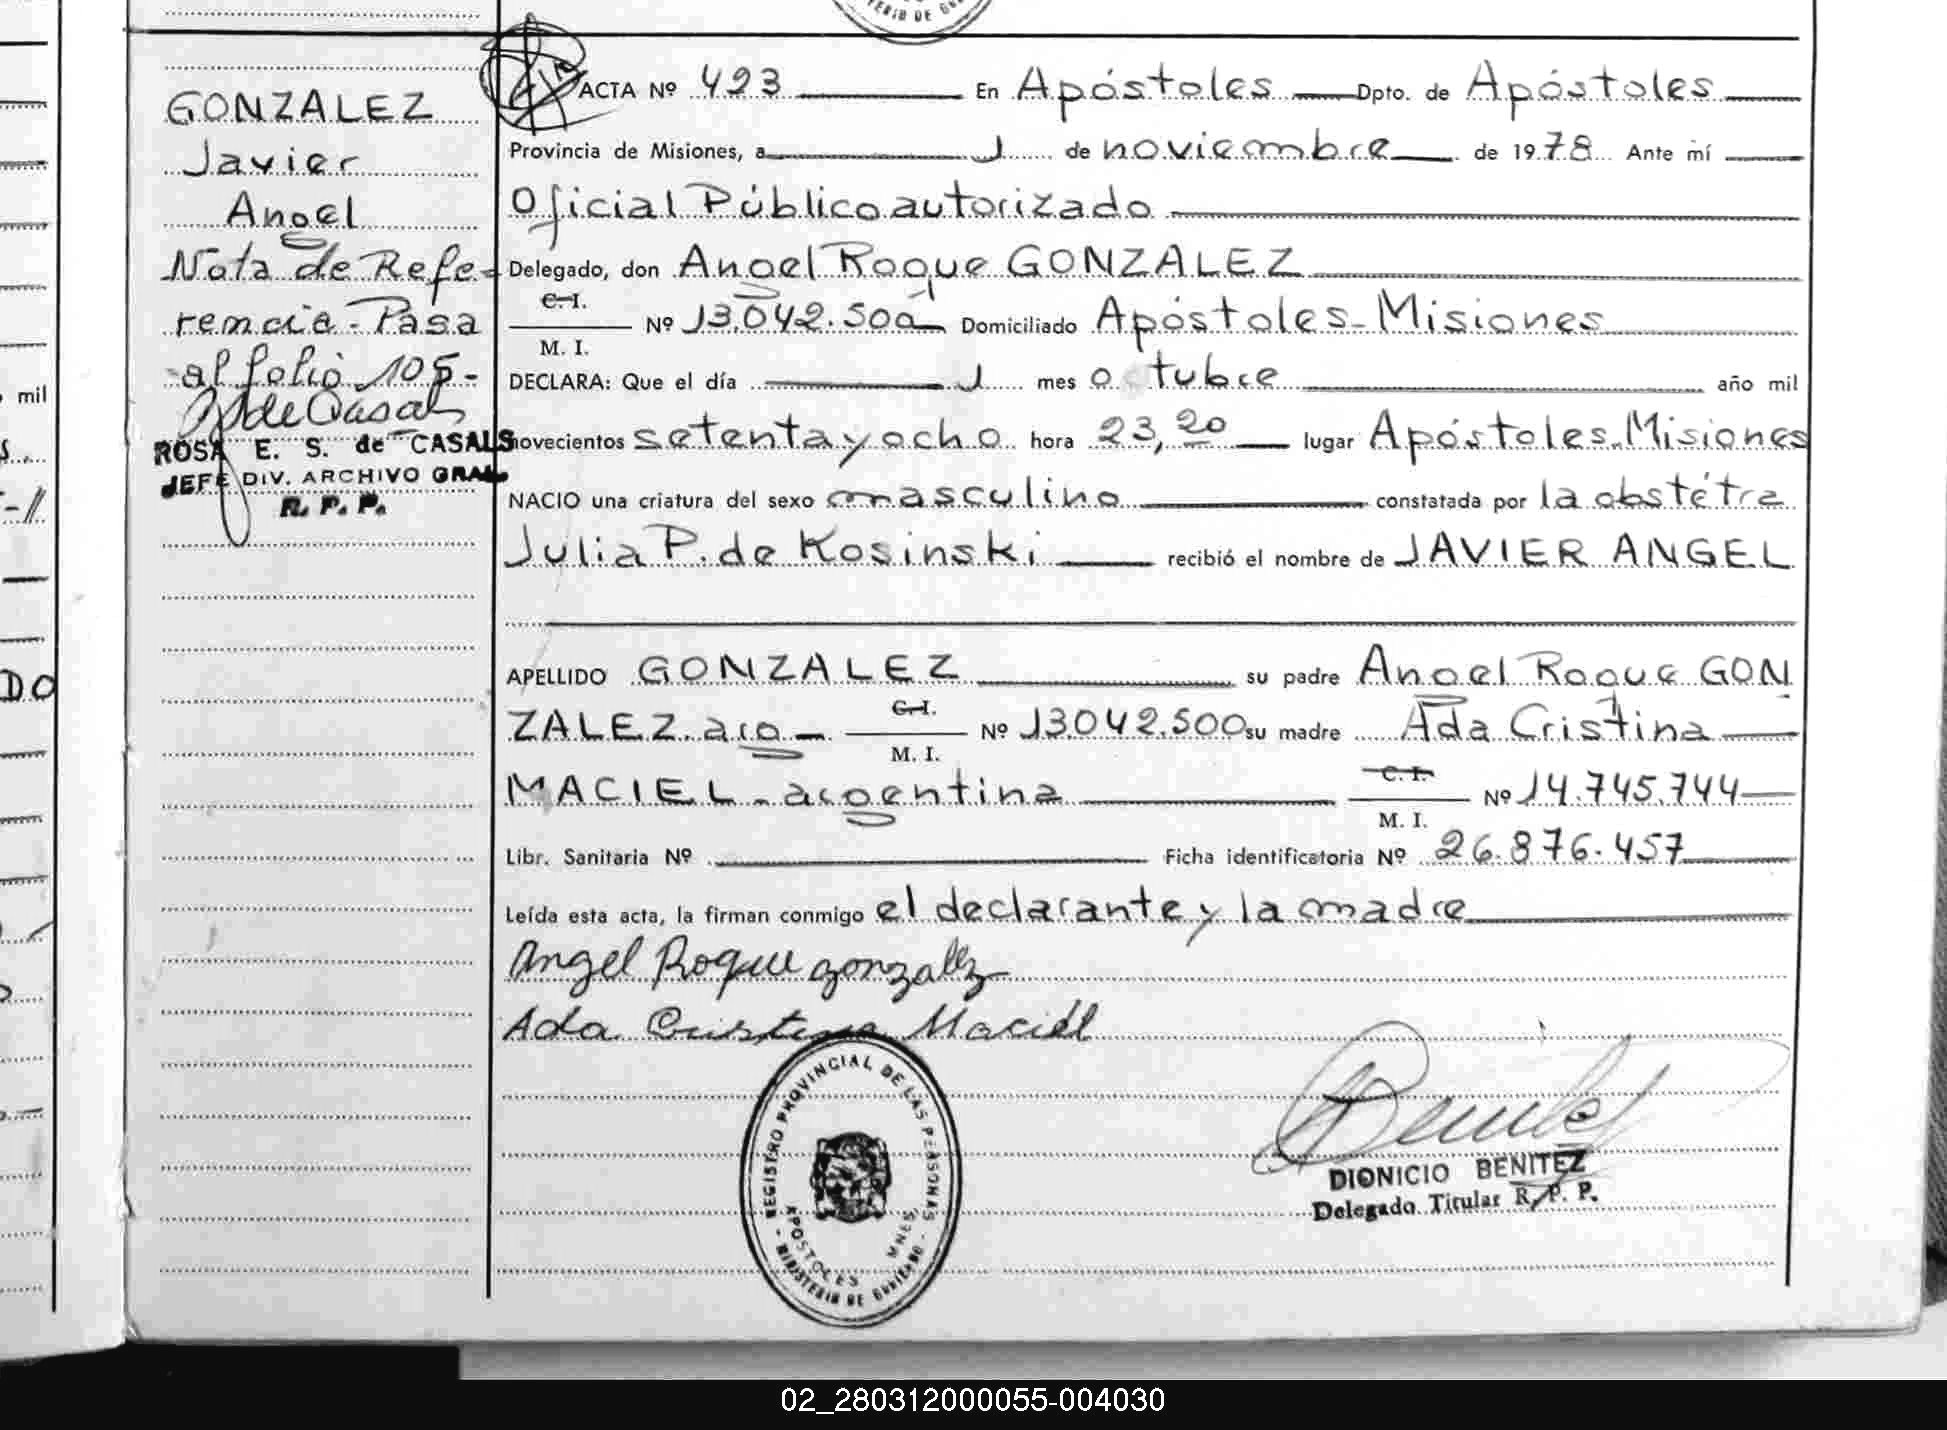 GONZALEZ
Javier
Angel
Nota de Refe-
rencia - Pasa
al folio 105-
ROSA E. S. de CASALS
JEFE DIV. ARCHIVO GRAL.
R. P. P.
ACTA Nº 493 En Apóstoles Dpto. de Apóstoles
Provincia de Misiones, a 1 de noviembre de 1978 Ante mí
Oficial Público autorizado
Delegado, don Angel Roque GONZALEZ
C. I.
M. I. Nº 13.042.500 Domiciliado Apóstoles - Misiones
DECLARA: Que el día 1 mes octubre año mil
novecientos setenta y ocho hora 23,20 lugar Apóstoles - Misiones
NACIO una criatura del sexo masculino constatada por la obstétra
Julia P. de Kosinski recibió el nombre de JAVIER ANGEL
APELLIDO GONZALEZ su padre Angel Roque GON
ZALEZ. arg - C. I. M. I. Nº 13.042.500 su madre Ada Cristina
MACIEL - argentina C. I. M. I. Nº 14.745.744
Libr. Sanitaria Nº Ficha identificatoria Nº 26.876.457
Leída esta acta, la firman conmigo el declarante y la madre
Angel Roque gonzalez
Ada Cristina Maciel
REGISTRO PROVINCIAL DE LAS PERSONAS
APOSTOLES MNES
- MINISTERIO DE GOBIERNO -
DIONICIO BENITEZ
Delegado Titular R. P. P.
mil
DO
02_280312000055-004030